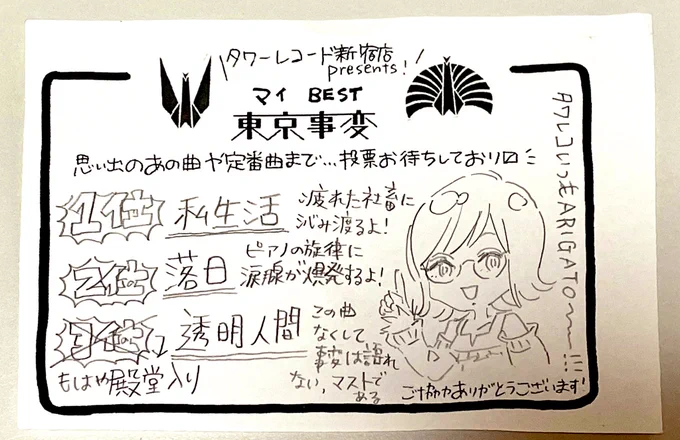 タワーレコード新宿店
presents!
マイ BEST
東京事変
思い出のあの曲や定番曲まで…投票お待ちしており〼
1位 私生活
疲れた社畜に
沁み渡るよ!
2位 落日
ピアノの旋律に
涙腺が爆発するよ!
3位 透明人間
もはや殿堂入り
この曲
なくして
事変は語れ
ない,マストで
ある
タワレコいつもARIGATO〜!!!
ご協力ありがとうございます!